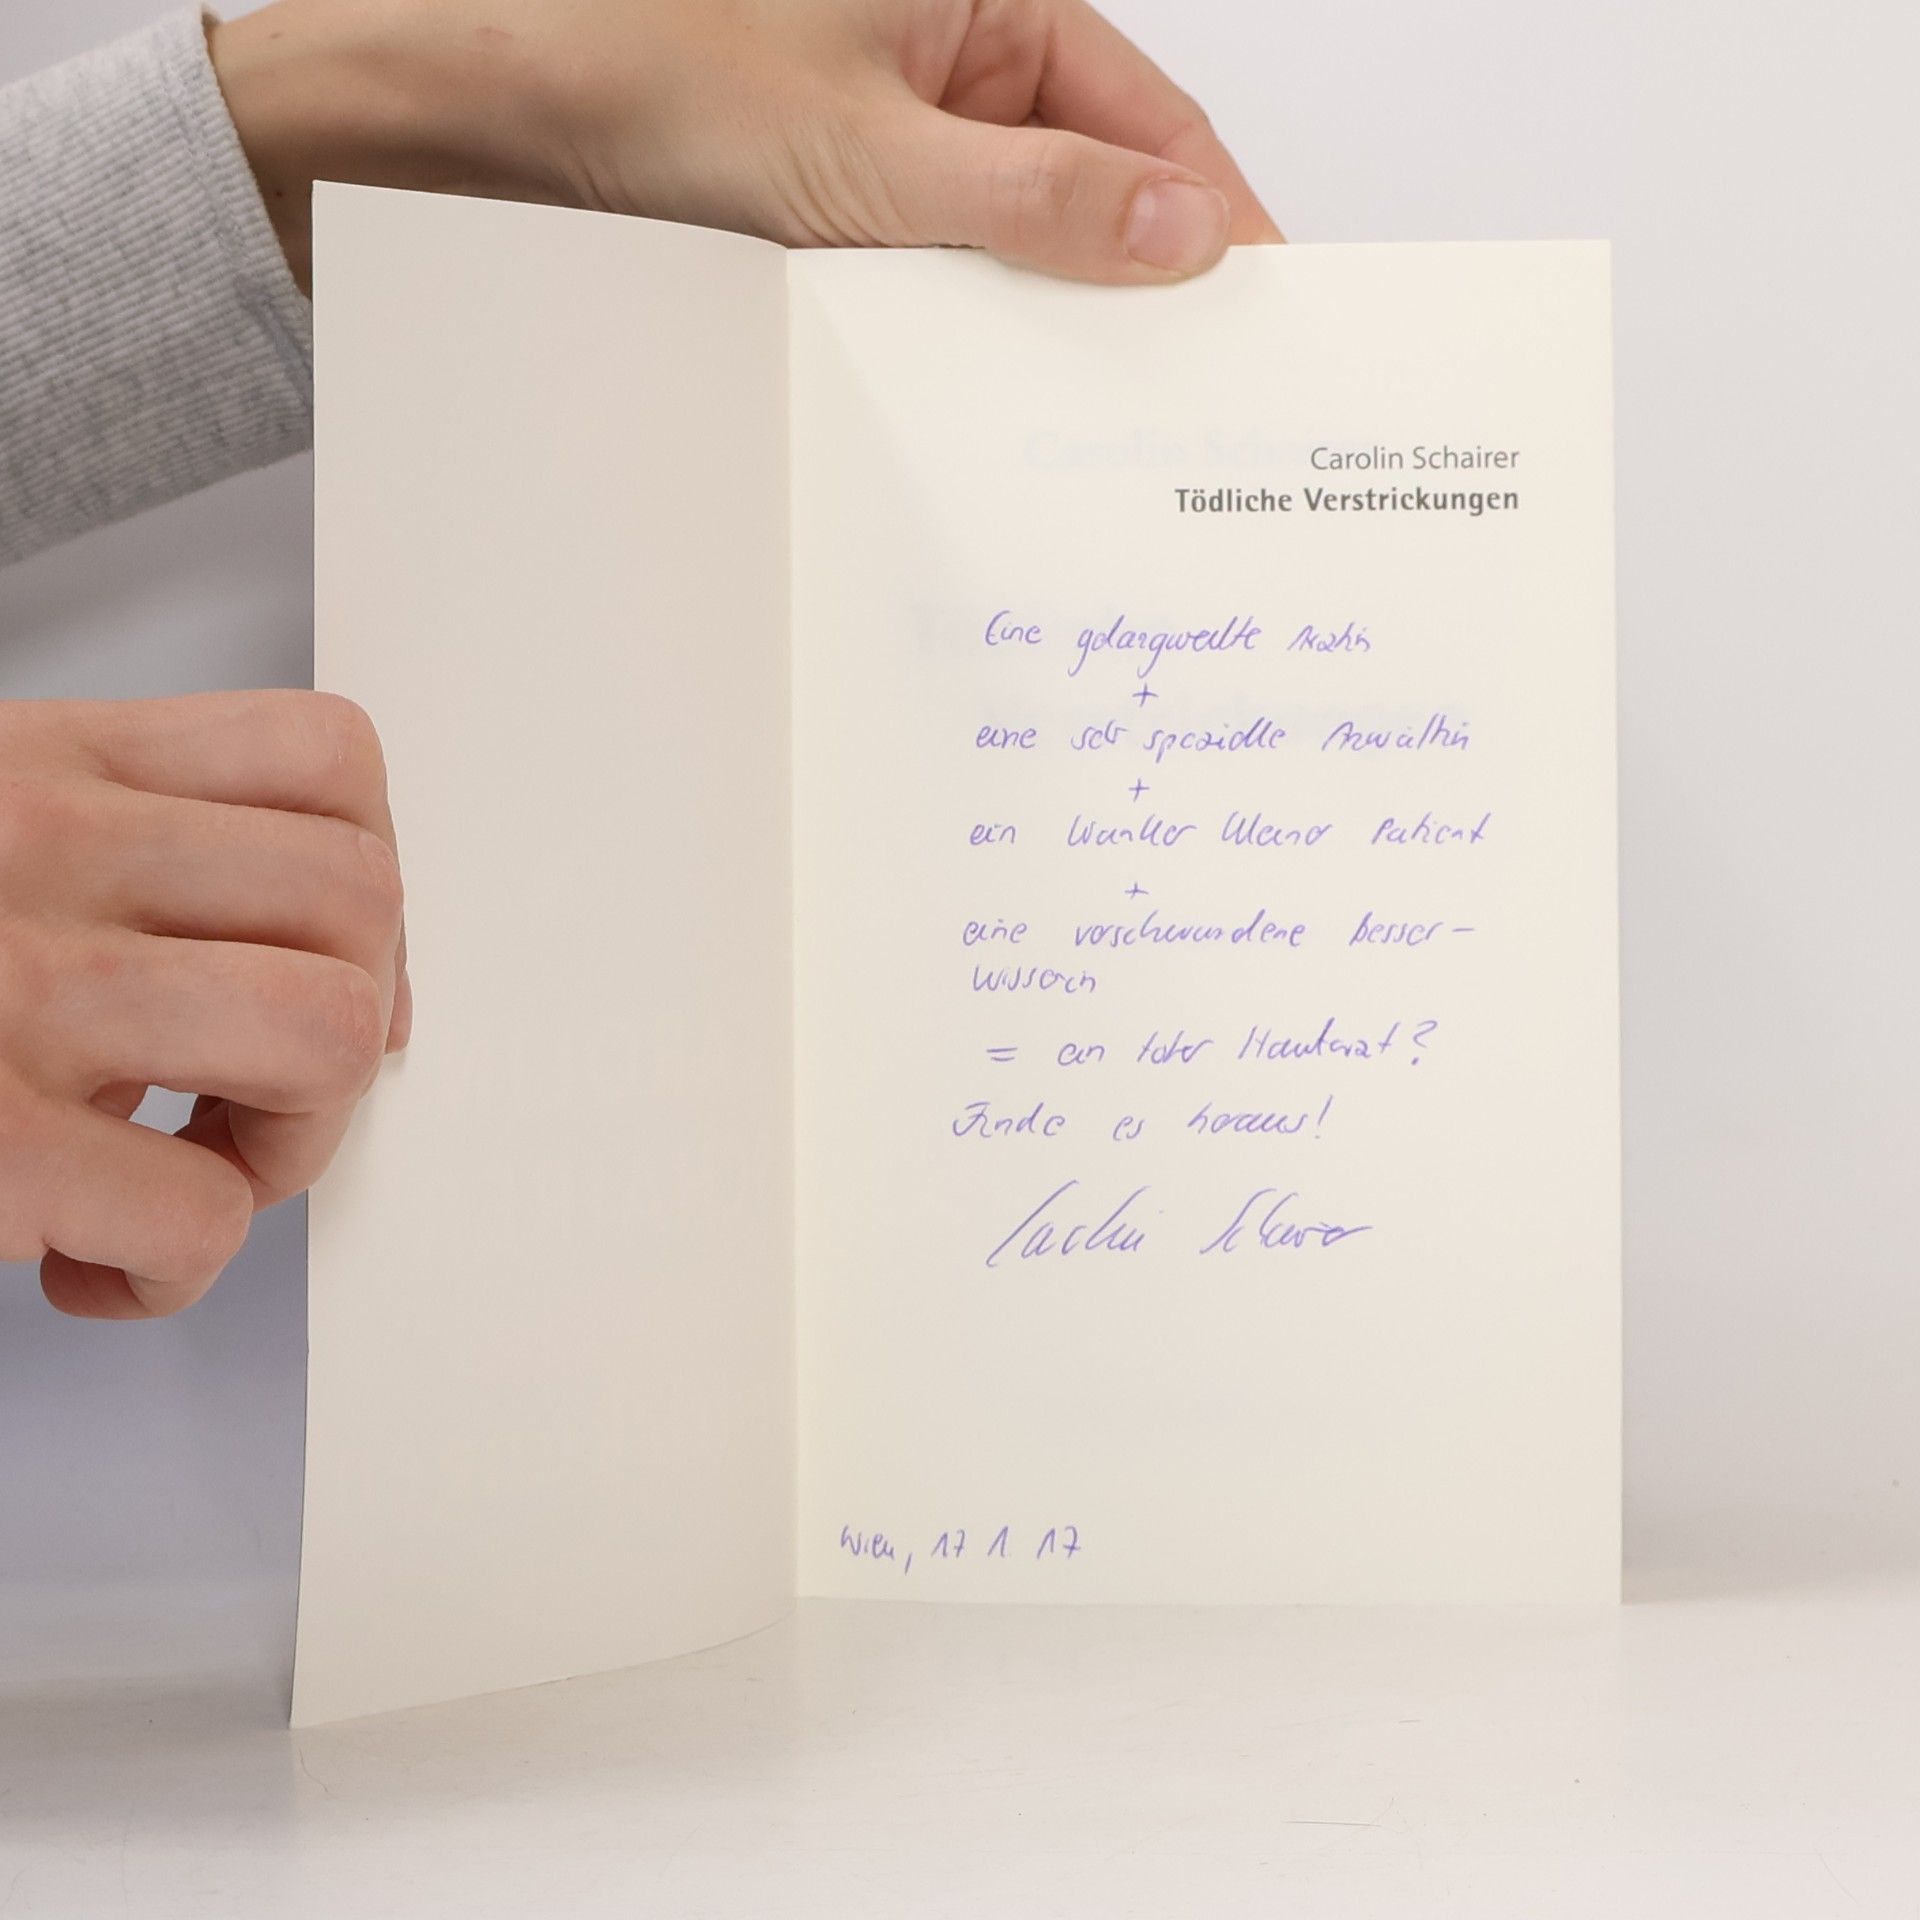 Carolin Schairer
Tödliche Verstrickungen
Eine gelangweilte Ärztin
+
eine sehr spezielle Anwältin
+
ein kranker kleiner Patient
+
eine verschwundene Besser-
wisserin
= ein toter Hautarzt?
Finde es heraus!
Carolin Schairer
Wien, 17 1. 17